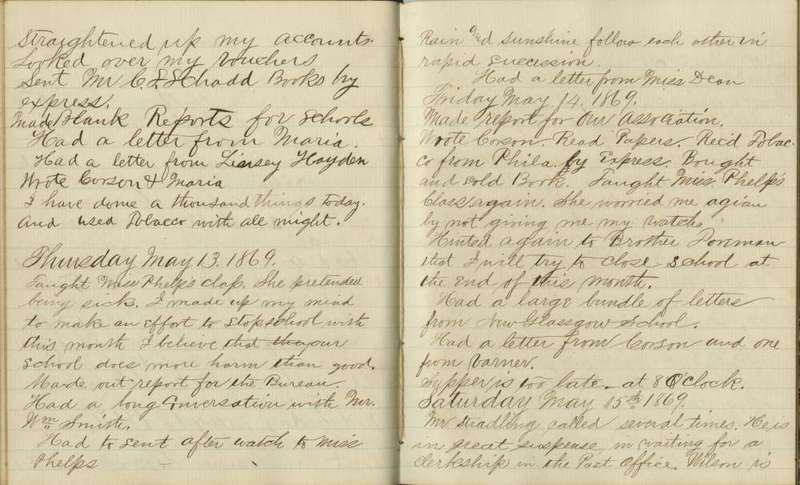 Straightened up my accounts.
Looked over my vouchers
Sent Mr C. S. Schadd Books by
express.
Made Blank Reports for schools
Had a letter from Maria.
Had a letter from Linsey Hayden
Wrote Corson & Maria
I have done a thousand things today.
And used Tobacco with all might.
Thursday May 13. 1869.
Taught Miss Phelps clas. She pretended
being sick. I made up my mind
to make an effort to stop school with
this month I believe that our
school does more harm than good.
Made out report for the Bureau.
Had a long conversation with Mr.
Wm Smith.
Had to sent after watch to Miss
Phelps
Rain and sunshine follow each other in
rapid sucession.
Had a letter from Miss Dean
Friday May 14. 1869.
Made report for Our Association.
Wrote Corson. Read Papers. Rec'd Tobac-
co from Phila. by Express. Bought
and sold Book. Taught Miss Phelp's
Class again. She worried me agian
by not giving me my watch.
Hinted again to Brother
that I will try to close school at
the end of this month.
Had a large bundle of letters
from New Glassgow School.
Had a letter from Corson and one
from Varner.
Supper is too late. at 8 O'Clock.
Saturday May 15th 1869.
Mr Stradling called several times. He is
in great suspense in waiting for a
clerkship in the Post Office. Wilson is